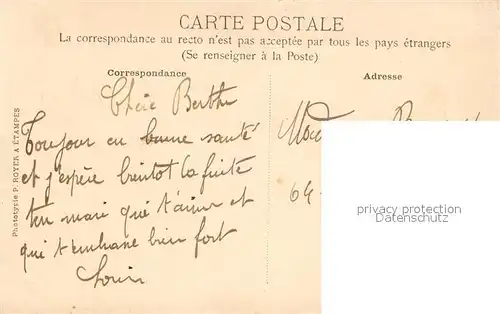 CARTE POSTALE
La correspondance au recto n'est pas acceptée par tous les pays étrangers
(Se renseigner à la Poste)
Correspondance
Adresse
Chère Berthe
Toujour en bonne santé
et j'espère bientot la fuite
ton mari qui t'aime et
qui t'embrasse bien fort
Louis
64
privacy protection
Datenschutz
Phototypie P. ROYER A ÉTAMPES